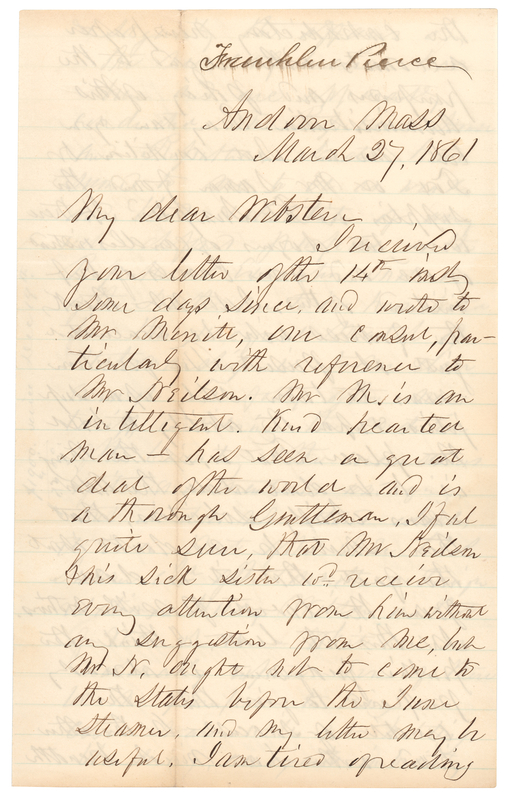 Franklin Pierce
Andover Mass
March 27, 1861
My dear Webster
I received
your letter of the 14th inst
some days since, and wrote to
Mr Merritt, our consul, par-
ticularly with reference to
Mr Neilson. Mr M. is an
intelligent. Kind hearted
man — has seen a great
deal of the world and is
a thorough Gentleman, I feel
quite sure, that Mr Neilson
& his sick sister wd receive
every attention from him without
any suggestion from me, but
Mr N. ought not to come to
the States before the June
steamer, and my letter may be
useful. I am tired of reading